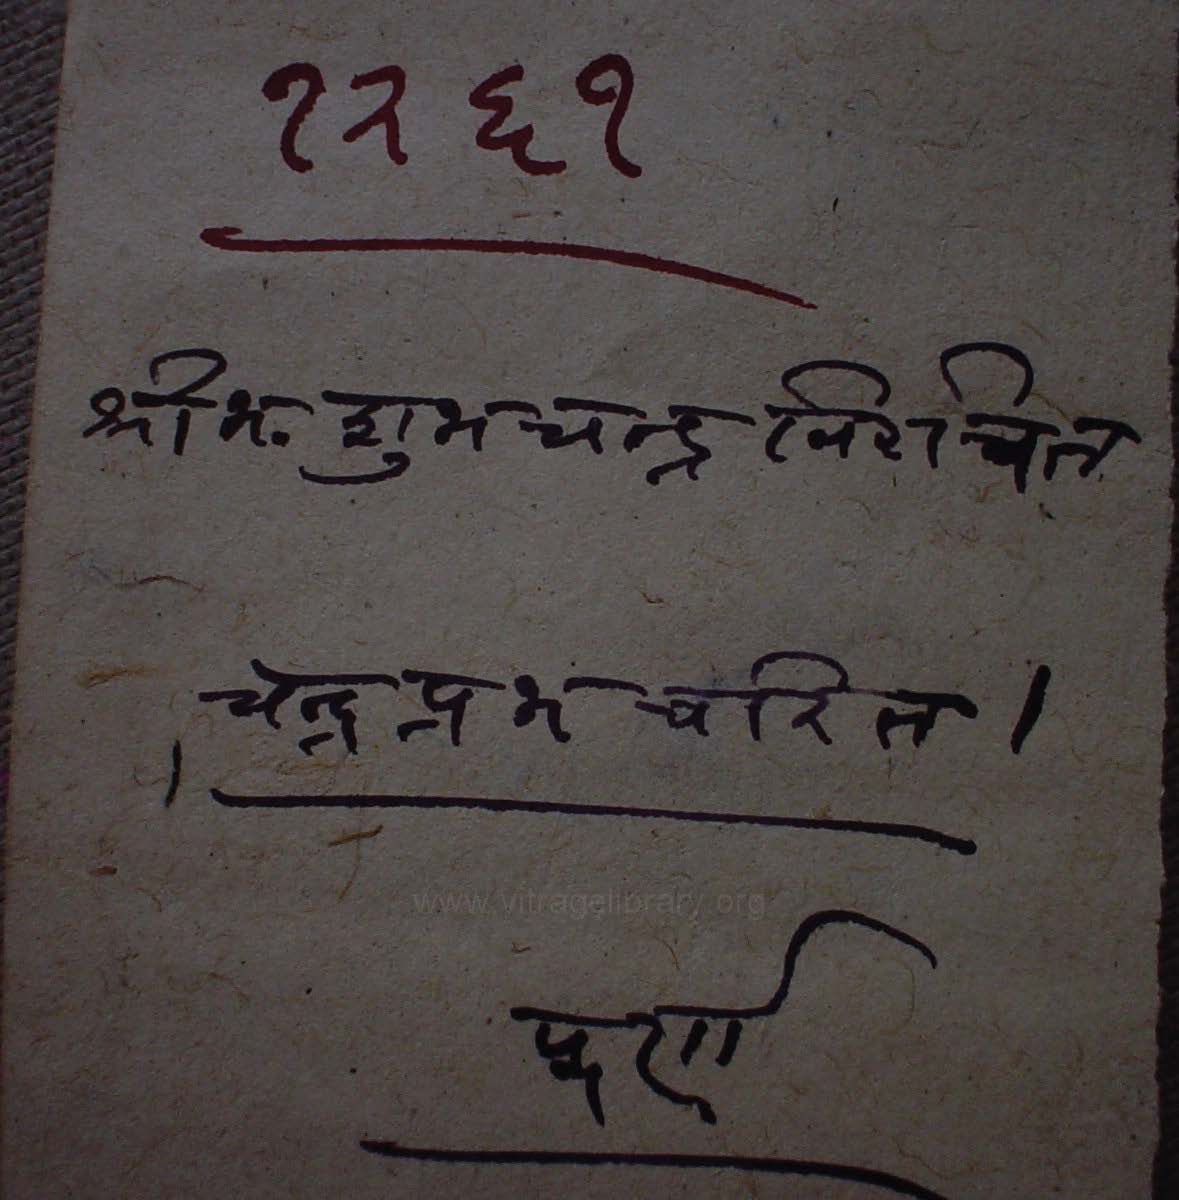 १२६१
श्री भ. शुभचन्द्र विरचित
चन्द्रप्रभ चरित ।
www.vitragelibrary.org